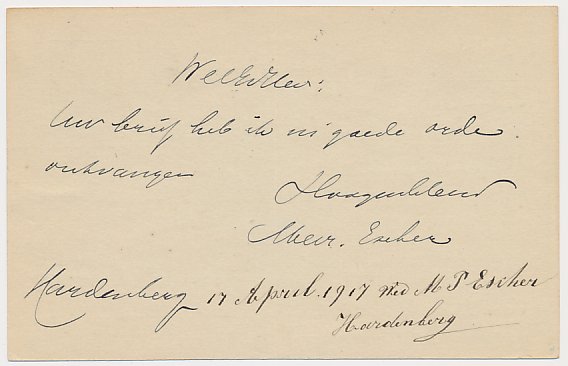 WelEdHeer:
Uw brief heb ik in goede orde
ontvangen
Hoogachtend
Mevr. Escher
Hardenberg 17 April. 1917 Wed M P Escher
Hardenberg